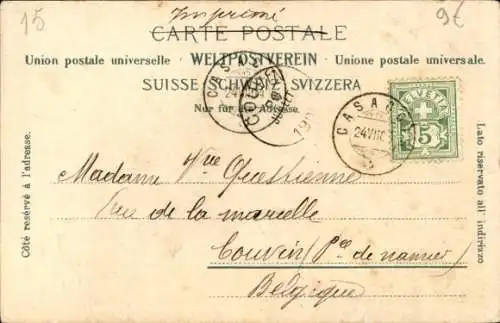 15
Imprimé
9€
CARTE POSTALE
Union postale universelle. WELTPOSTVEREIN Unione postale universale.
SUISSE SCHWEIZ SVIZZERA
Nur für die Adresse.
CASA
24 VII
COUVIN
JUILLET
HELVETIA
5
Côté resérvé à l'adresse.
Lato riservato all' indirizzo
Madame Vve Questienne
Rue de la marcelle
Couvin (Pce de namur)
Belgique